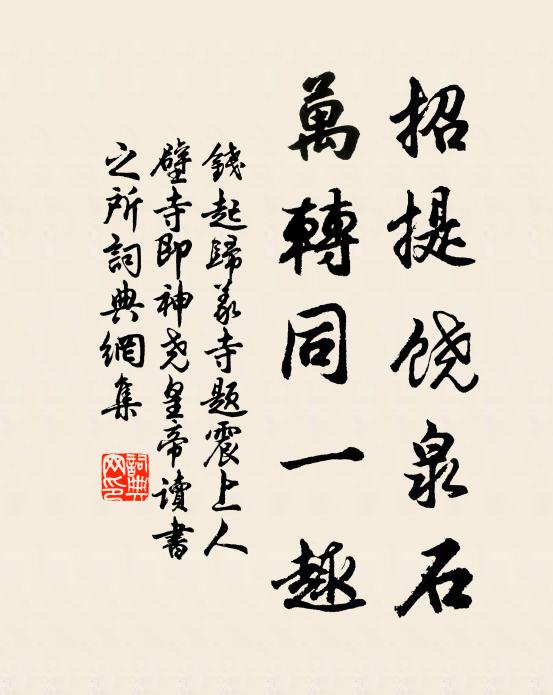 招提饶泉石
萬轉同一趣
錢起歸義寺題震上人
壁寺即神尧皇帝讀書
之所詞典網集
詞典網印